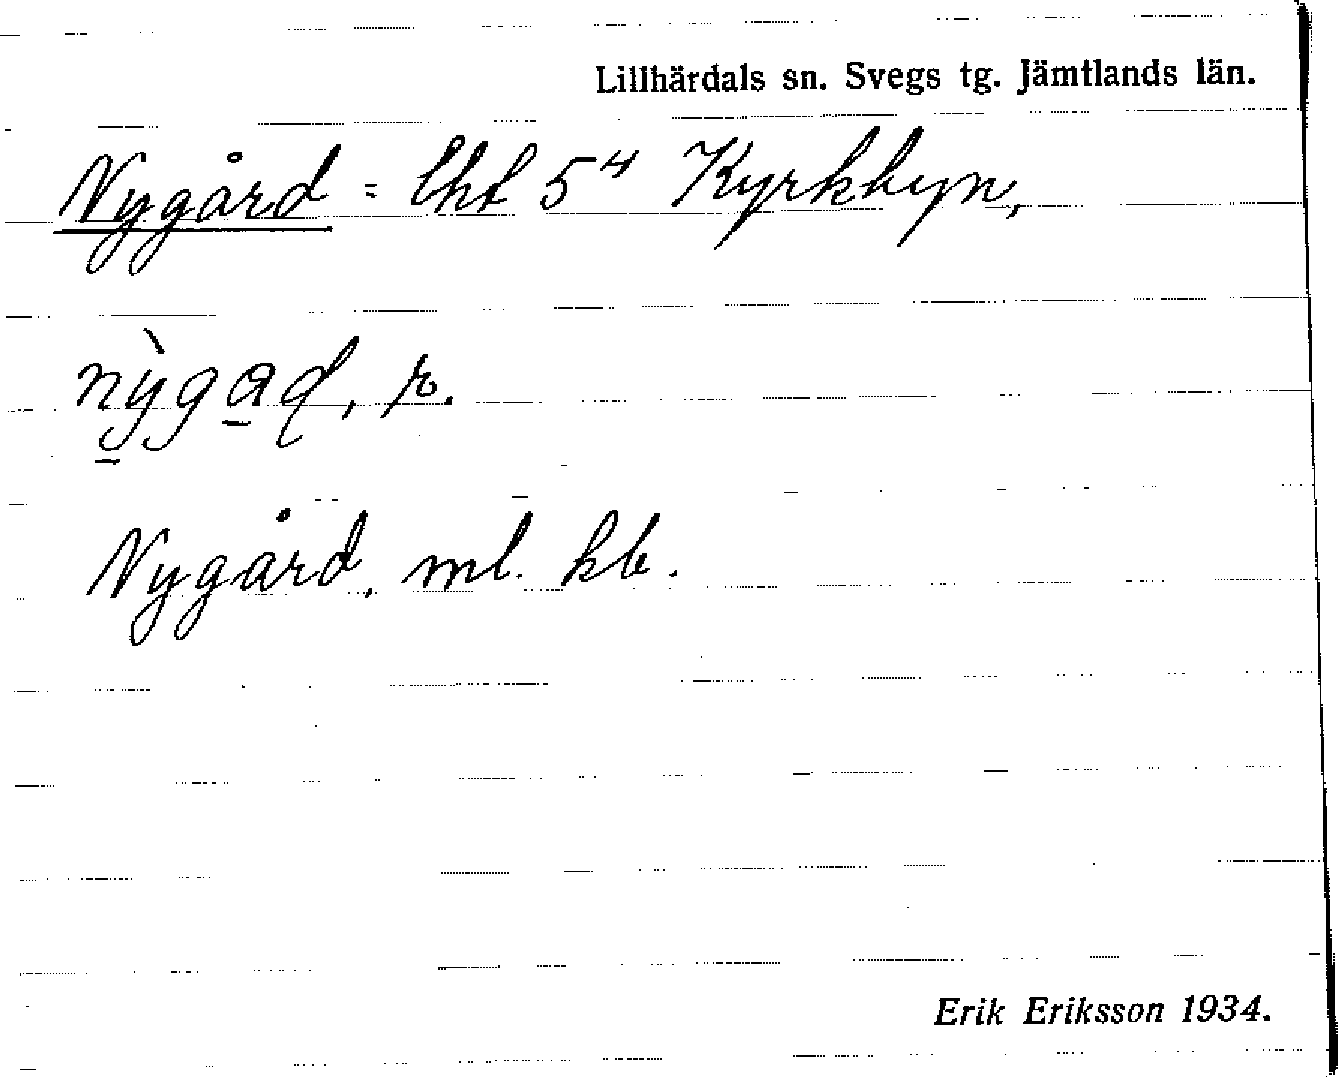 Lillhärdals sn. Svegs tg. Jämtlands län.
Nygård = Eht 5⁴ Kyrkbyn,
nỳgaɖ, r.
Nygård, ml. kb.
Erik Eriksson 1934.